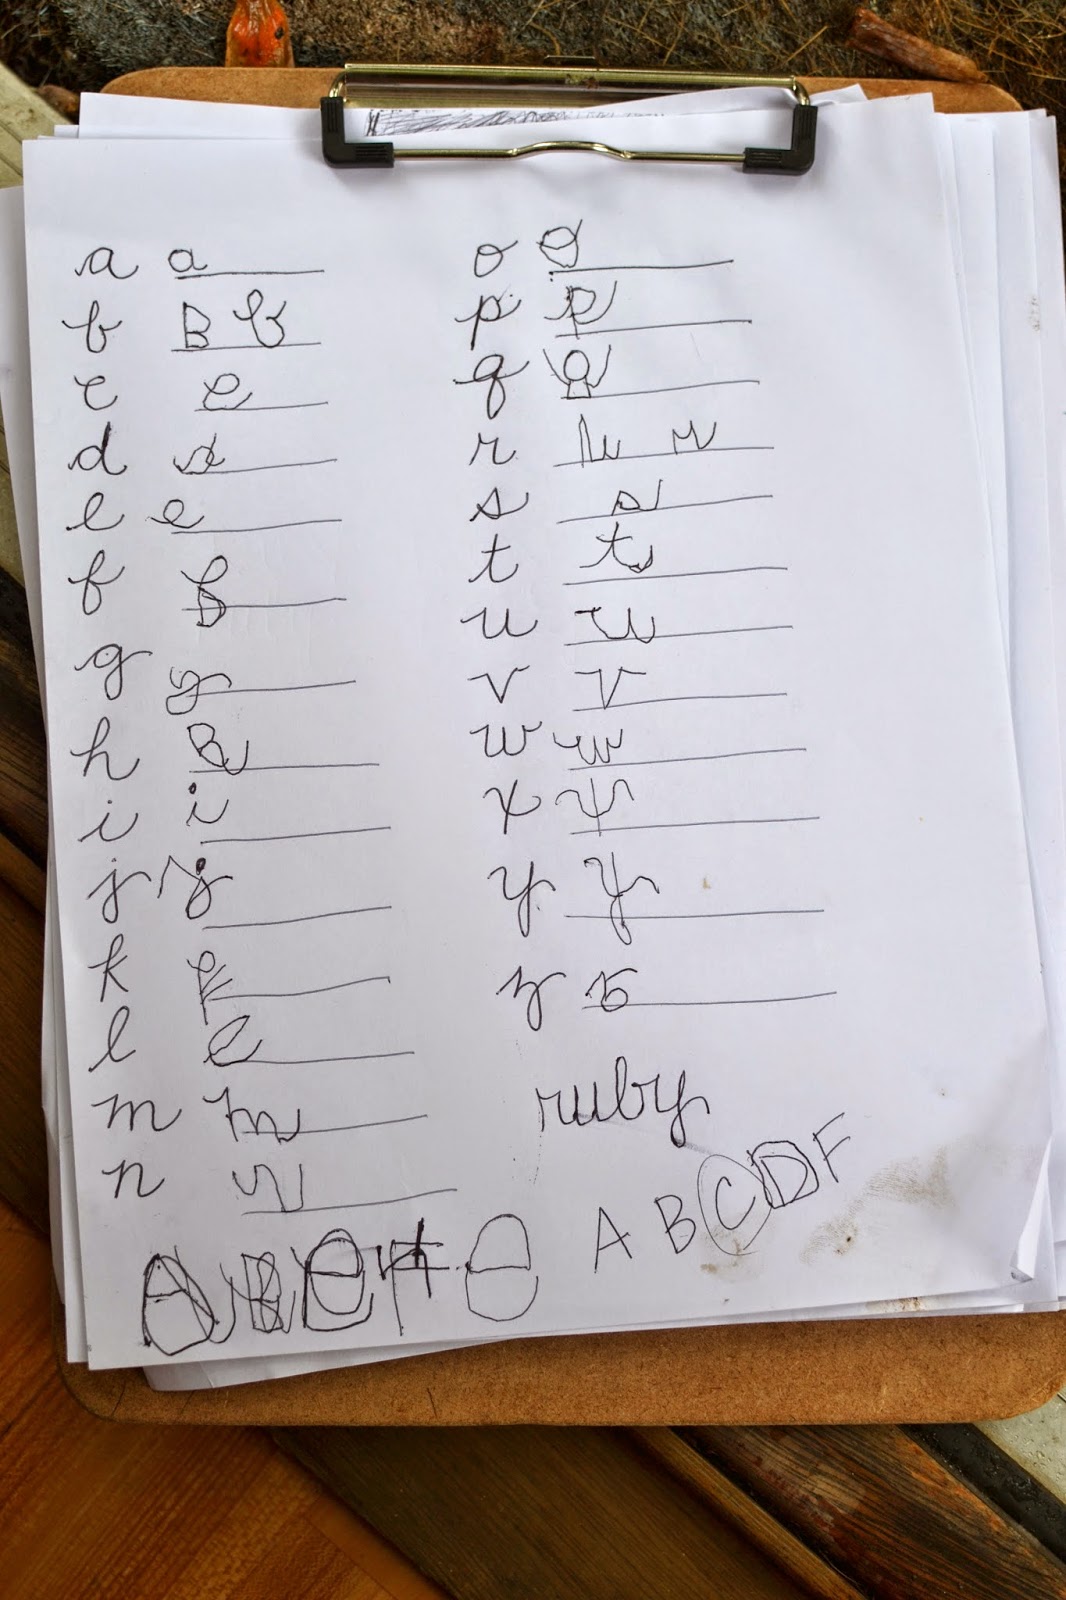 a a
b B b
c c
d d
e e
f f
g g
h h
i i
j j
k k
l l
m m
n n
o o
p p
q q
r r r
s s
t t
u u
v v
w w
x x
y y
z z
ruby
A B C D F
A B e